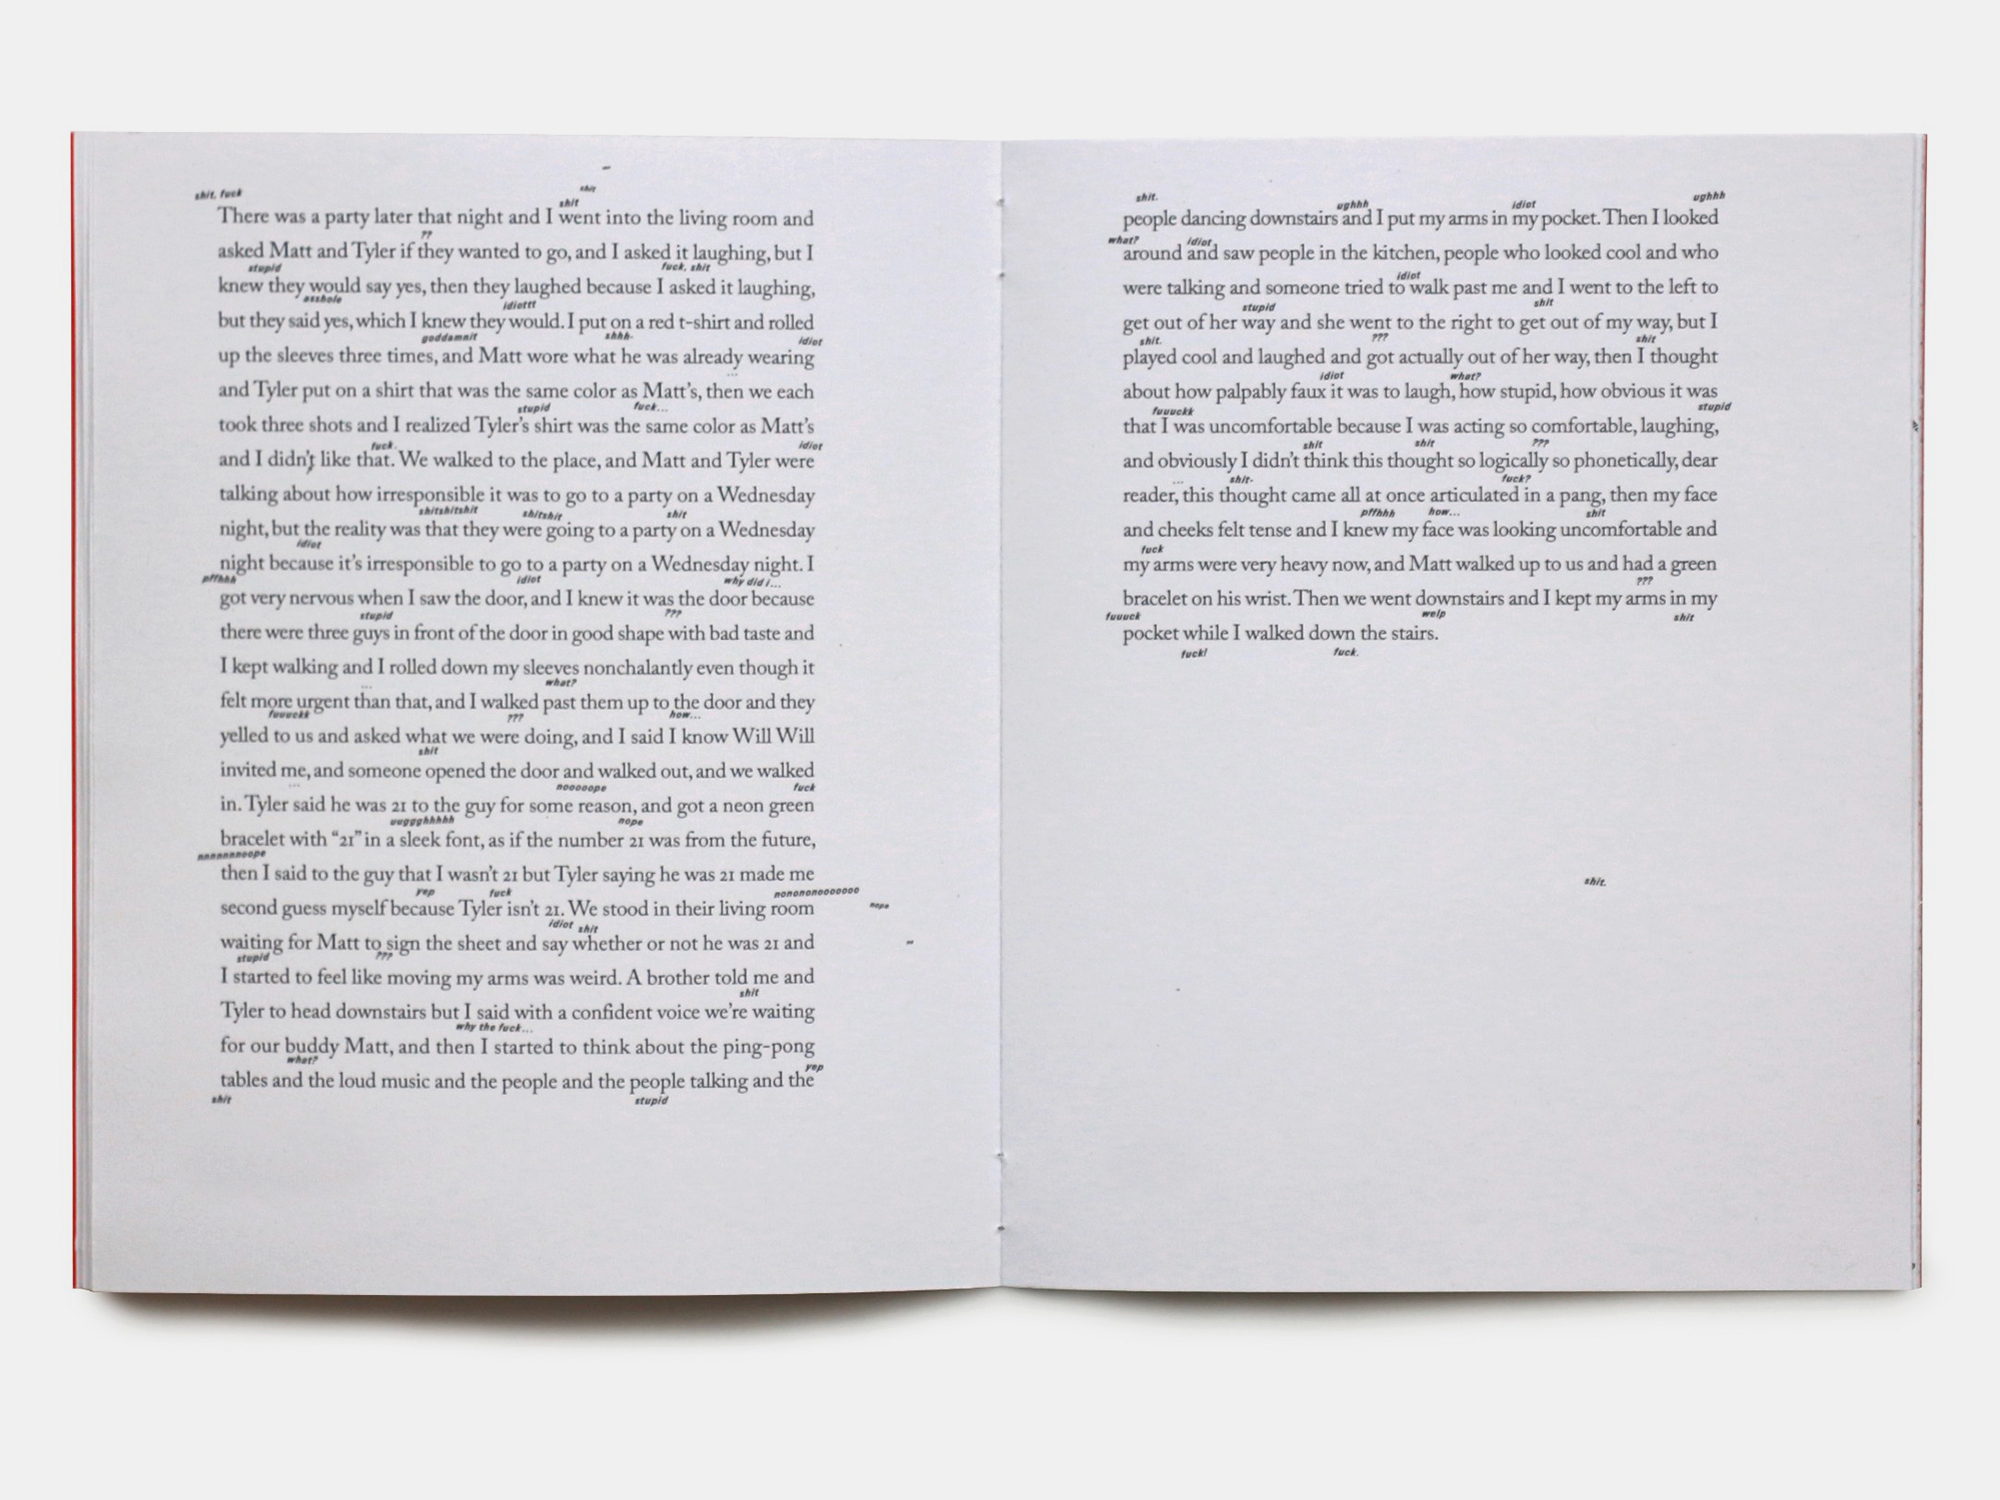 shit
shit, fuck
shit
There was a party later that night and I went into the living room and
??
asked Matt and Tyler if they wanted to go, and I asked it laughing, but I
stupid fuck, shit
knew they would say yes, then they laughed because I asked it laughing,
asshole idiottt
but they said yes, which I knew they would. I put on a red t-shirt and rolled
goddamnit shhh. idiot
up the sleeves three times, and Matt wore what he was already wearing
...
and Tyler put on a shirt that was the same color as Matt's, then we each
stupid fuck...
took three shots and I realized Tyler's shirt was the same color as Matt's
fuck. idiot
and I didn't like that. We walked to the place, and Matt and Tyler were
talking about how irresponsible it was to go to a party on a Wednesday
shitshitshit shitshit shit
night, but the reality was that they were going to a party on a Wednesday
idiot
night because it's irresponsible to go to a party on a Wednesday night. I
pffhhh idiot why did i...
got very nervous when I saw the door, and I knew it was the door because
stupid ???
there were three guys in front of the door in good shape with bad taste and
I kept walking and I rolled down my sleeves nonchalantly even though it
... what?
felt more urgent than that, and I walked past them up to the door and they
fuuuckk ??? how...
yelled to us and asked what we were doing, and I said I know Will Will
shit
invited me, and someone opened the door and walked out, and we walked
... nooooope fuck
in. Tyler said he was 21 to the guy for some reason, and got a neon green
uuggghhhhh nope
bracelet with “21” in a sleek font, as if the number 21 was from the future,
then I said to the guy that I wasn't 21 but Tyler saying he was 21 made me
yep fuck
second guess myself because Tyler isn't 21. We stood in their living room
nope
idiot shit
waiting for Matt to sign the sheet and say whether or not he was 21 and
stupid ???
I started to feel like moving my arms was weird. A brother told me and
shit
Tyler to head downstairs but I said with a confident voice we're waiting
why the fuck...
for our buddy Matt, and then I started to think about the ping-pong
what? yep
tables and the loud music and the people and the people talking and the
shit stupid
shit. ughhh idiot ughhh
people dancing downstairs and I put my arms in my pocket. Then I looked
what? idiot
around and saw people in the kitchen, people who looked cool and who
idiot
were talking and someone tried to walk past me and I went to the left to
stupid shit
get out of her way and she went to the right to get out of my way, but I
shit. ??? shit
played cool and laughed and got actually out of her way, then I thought
idiot what?
about how palpably faux it was to laugh, how stupid, how obvious it was
fuuuckk stupid
that I was uncomfortable because I was acting so comfortable, laughing,
shit shit ???
and obviously I didn't think this thought so logically so phonetically, dear
... shit. fuck?
reader, this thought came all at once articulated in a pang, then my face
pffhhh how... shit
and cheeks felt tense and I knew my face was looking uncomfortable and
fuck
my arms were very heavy now, and Matt walked up to us and had a green
???
bracelet on his wrist. Then we went downstairs and I kept my arms in my
fuuuck welp shit
pocket while I walked down the stairs.
fuck! fuck.
shit.